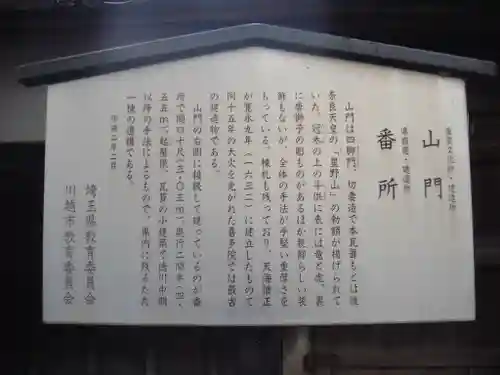 重要文化財・建造物
山門
県指定・建造物
番所
山門は四脚門、切妻造で本瓦葺もとは後
奈良天皇の「星野山」の勅額が掲げられて
いた。冠木の上の斗栱に表には竜と虎、裏
に唐獅子の彫ものがあるほか装飾らしい装
飾もないが、全体の手法が手堅い重厚さを
もっている。棟札も残っており、天海僧正
が寛永九年（一六三二）に建立したもので
同十五年の大火を免がれた喜多院では最古
の建造物である。
山門の右側に接続して建っているのが番
所で間口十尺（三・〇三m）、奥行二間半（四・
五五m）、起屋根、瓦葺の小建築で徳川中期
以降の手法によるもので、県内に残るただ
一棟の遺構である。
平成二年二月
埼玉県教育委員会
川越市教育委員会